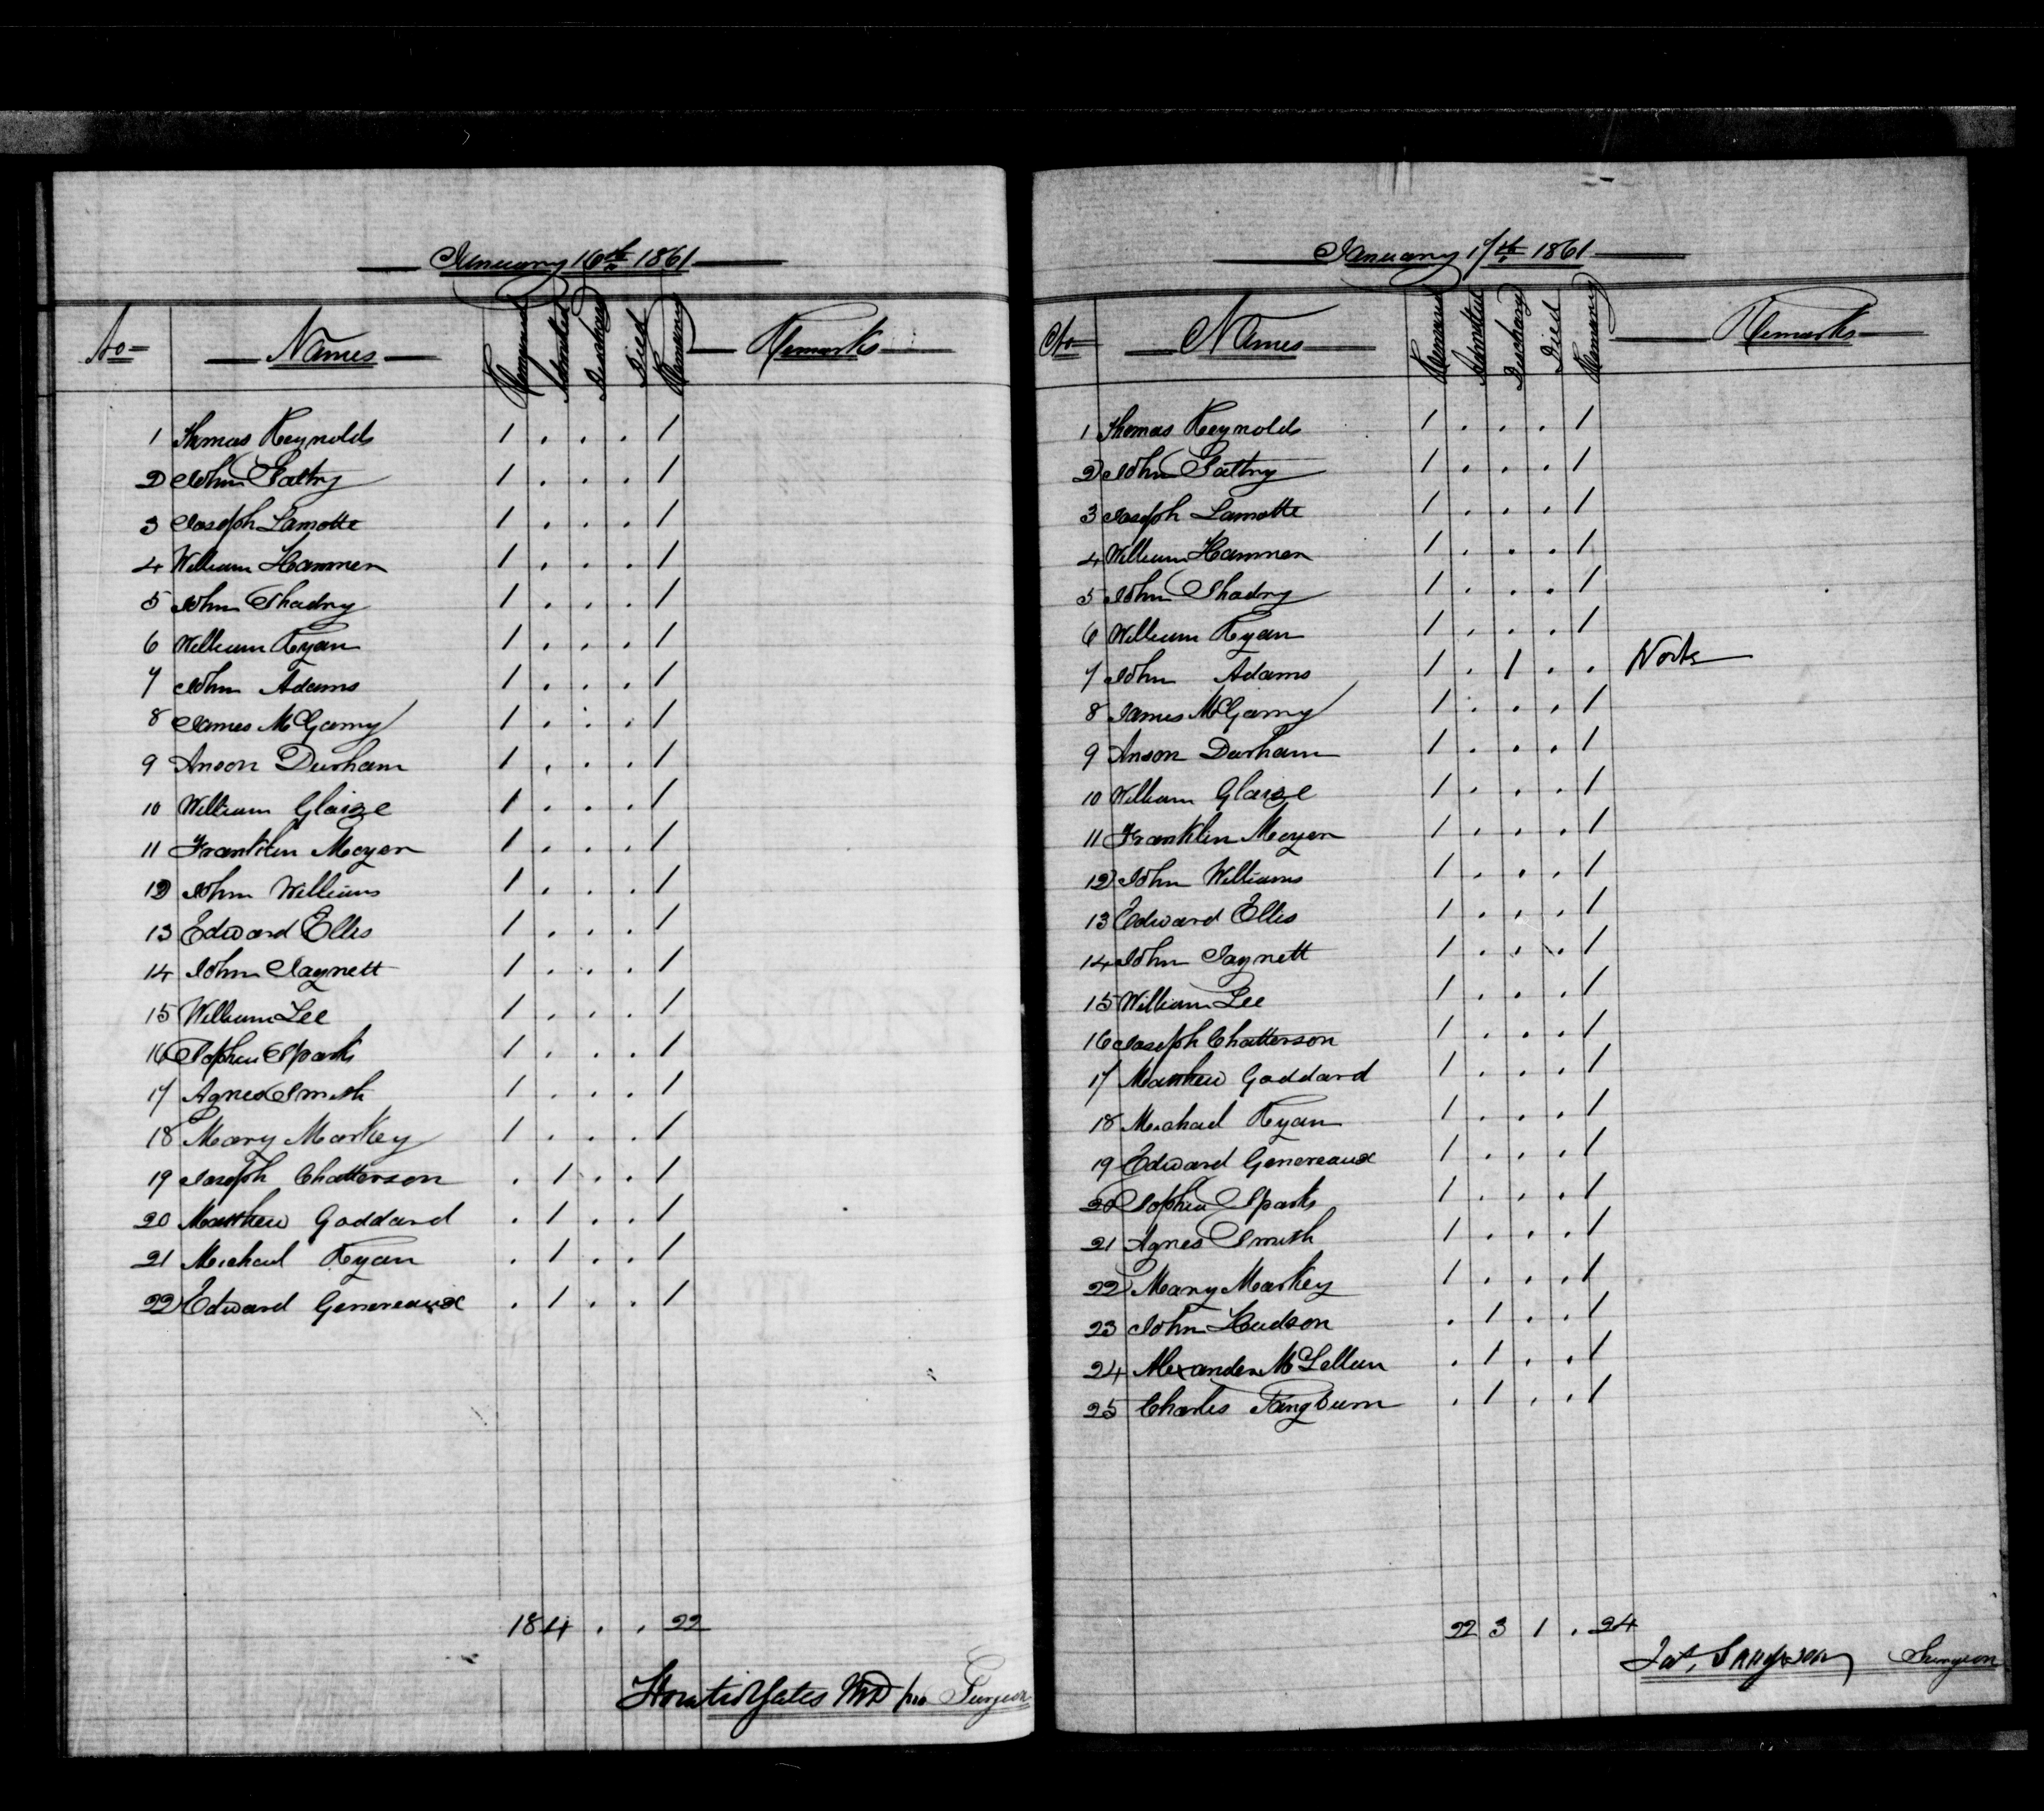 January 16th 1861
No Names Remained Admitted Discharged Died Remaining Remarks
1 Thomas Reynolds 1 . . . 1
2 John Fattry 1 . . . 1
3 Joseph Lamotte 1 . . . 1
4 William Hammen 1 . . . 1
5 John Shadny 1 . . . 1
6 William Ryan 1 . . . 1
7 John Adams 1 . . . 1
8 James McGarny 1 . . . 1
9 Anson Durham 1 . . . 1
10 William Glaize 1 . . . 1
11 Franklin Moyer 1 . . . 1
12 John Williams 1 . . . 1
13 Edward Ellis 1 . . . 1
14 John Jaynett 1 . . . 1
15 William Lee 1 . . . 1
16 Sophia Sparks 1 . . . 1
17 Agnes Smith 1 . . . 1
18 Mary Markey 1 . . . 1
19 Joseph Chatterson . 1 . . 1
20 Matthew Goddard . 1 . . 1
21 Michael Ryan . 1 . . 1
22 Edward Genereaux . 1 . . 1
18 4 . . 22
Horatio Yates MD pro Surgeon
January 17th 1861
No Names Remained Admitted Discharg Died Remaining Remarks
1 Thomas Reynolds 1 . . . 1
2 John Fattry 1 . . . 1
3 Joseph Lamotte 1 . . . 1
4 William Hammen 1 . . . 1
5 John Shadny 1 . . . 1
6 William Ryan 1 . . . 1
7 John Adams 1 . 1 . . Works
8 James McGarny 1 . . . 1
9 Anson Durham 1 . . . 1
10 William Glaize 1 . . . 1
11 Franklin Moyer 1 . . . 1
12 John Williams 1 . . . 1
13 Edward Ellis 1 . . . 1
14 John Jaynett 1 . . . 1
15 William Lee 1 . . . 1
16 Joseph Chatterson 1 . . . 1
17 Matthew Goddard 1 . . . 1
18 Michael Ryan 1 . . . 1
19 Edward Genereaux 1 . . . 1
20 Sophia Sparks 1 . . . 1
21 Agnes Smith 1 . . . 1
22 Mary Markey 1 . . . 1
23 John Hudson . 1 . . 1
24 Alexander McLellan . 1 . . 1
25 Charles Pangburn . 1 . . 1
22 3 1 . 24
Jas. Sampson Surgeon